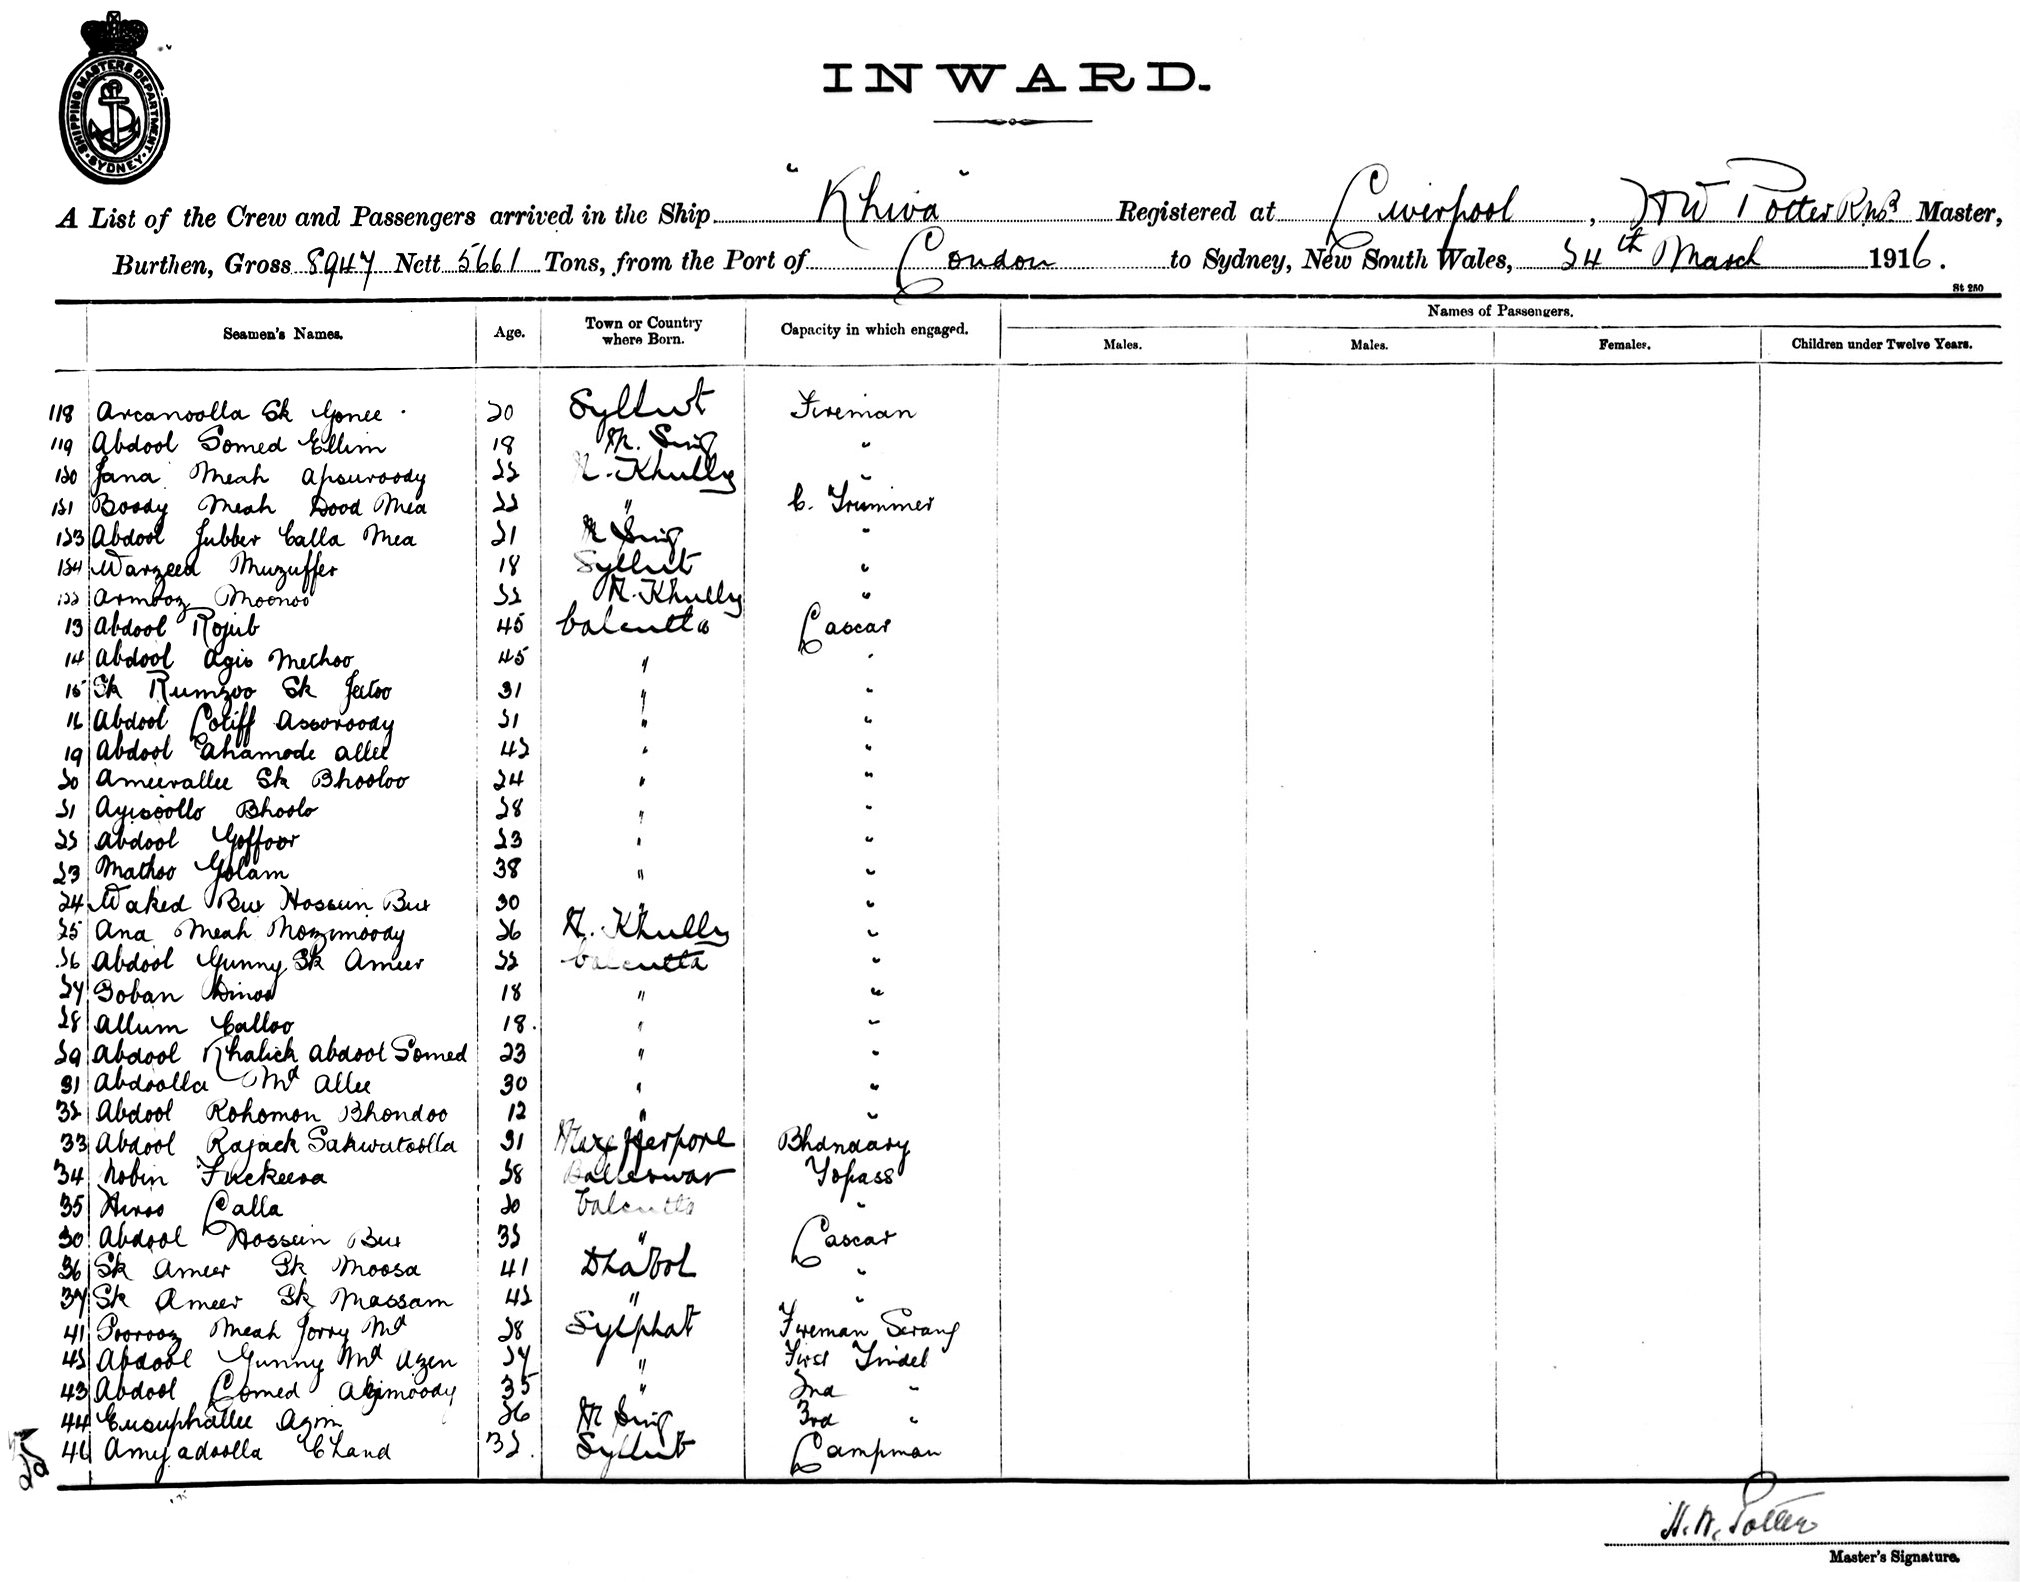 SHIPPING MASTERS DEPARTMENT. SYDNEY
INWARD.
A List of the Crew and Passengers arrived in the Ship "Khiva" Registered at Liverpool, HW Potter RNR Master,
Burthen, Gross 8947 Nett 5661 Tons, from the Port of London to Sydney, New South Wales, 24th March 1916.
St 250
Seamen's Names. Age. Town or Country where Born. Capacity in which engaged. Names of Passengers.
Males. Males. Females. Children under Twelve Years.
118 Arcanoolla Sk Gonee 20 Sylhut Fireman
119 Abdool Somed Ellim 18 M. Sing "
120 Jana Meah Apsuroody 22 N. Khully "
121 Boody Meah Dood Mea 22 " C. Trimmer
123 Abdool Jubber Calla Mea 21 M Sing "
124 Warzeed Muzuffer 18 Sylhut "
122 Armooz Moonoo 22 N. Khully "
13 Abdool Rojub 45 Calcutta Lascar
14 Abdool Agis Methoo 45 " "
15 Sk Rumzoo Sk Jatoo 31 " "
16 Abdool Lotiff Assoroody 21 " "
19 Abdool Ahamode Allee 42 " "
20 Ameerallee Sk Bhooloo 24 " "
21 Ayisoollo Bhoolo 28 " "
22 Abdool Goffoor 23 " "
23 Mathoo Golam 38 " "
24 Waked Bux Hossein Bux 30 " "
25 Ana Meah Mozimoody 26 N. Khully "
26 Abdool Gunny Sk Ameer 22 Calcutta "
27 Soban Dinoo 18 " "
28 Allum Calloo 18. " "
29 Abdool Khalick Abdool Somed 23 " "
31 Abdoolla Md Allee 30 " "
32 Abdool Rohomon Bhondoo 12 " "
33 Abdool Rajack Sakwutoolla 31 Mozefferpore Bhandary
34 Nobin Fuckeera 28 Balleswar Topass
35 Hiroo Lalla 20 Calcutta "
30 Abdool Hossein Bux 32 " Lascar
36 Sk Ameer Sk Moosa 41 Dhabol "
37 Sk Ameer Sk Massam 42 " "
41 Poorooz Meah Jorry Md 28 Sylphat Fireman Serang
42 Abdool Gunny Md Azen 27 " First Tindel
43 Abdool Somed Azimoody 35 " 2nd "
44 Eusuphallee Azim 26 M Sing 3rd "
46 Amyadoolla Chand 32. Sylhut Lampman
H. W. Potter
Master's Signature.